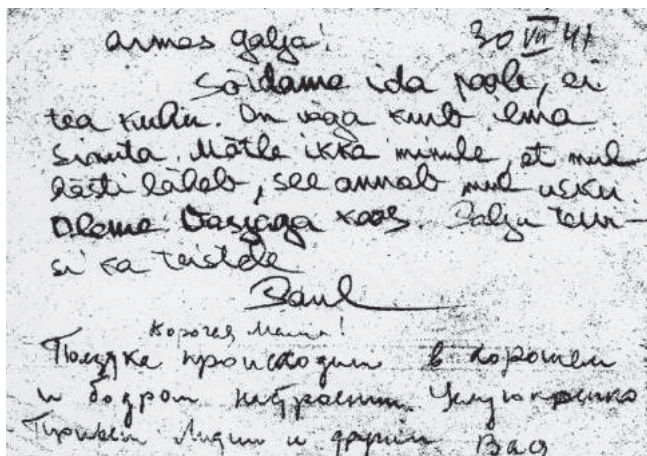 Armas Galja! 30 VII 41
Sõidame ida poole, ei
tea kuhu. On väga kurb ilma
Sinuta. Mõtle ikka minule, et mul
hästi läheb, see annab mul usku
Oleme Vasjaga koos. Palju tervi-
si ka teistele
Paul
Дорогая Маша!
Поездка происходит в хорошем
и бодром настроении. Целую крепко
Привет Лидии и другим Вася